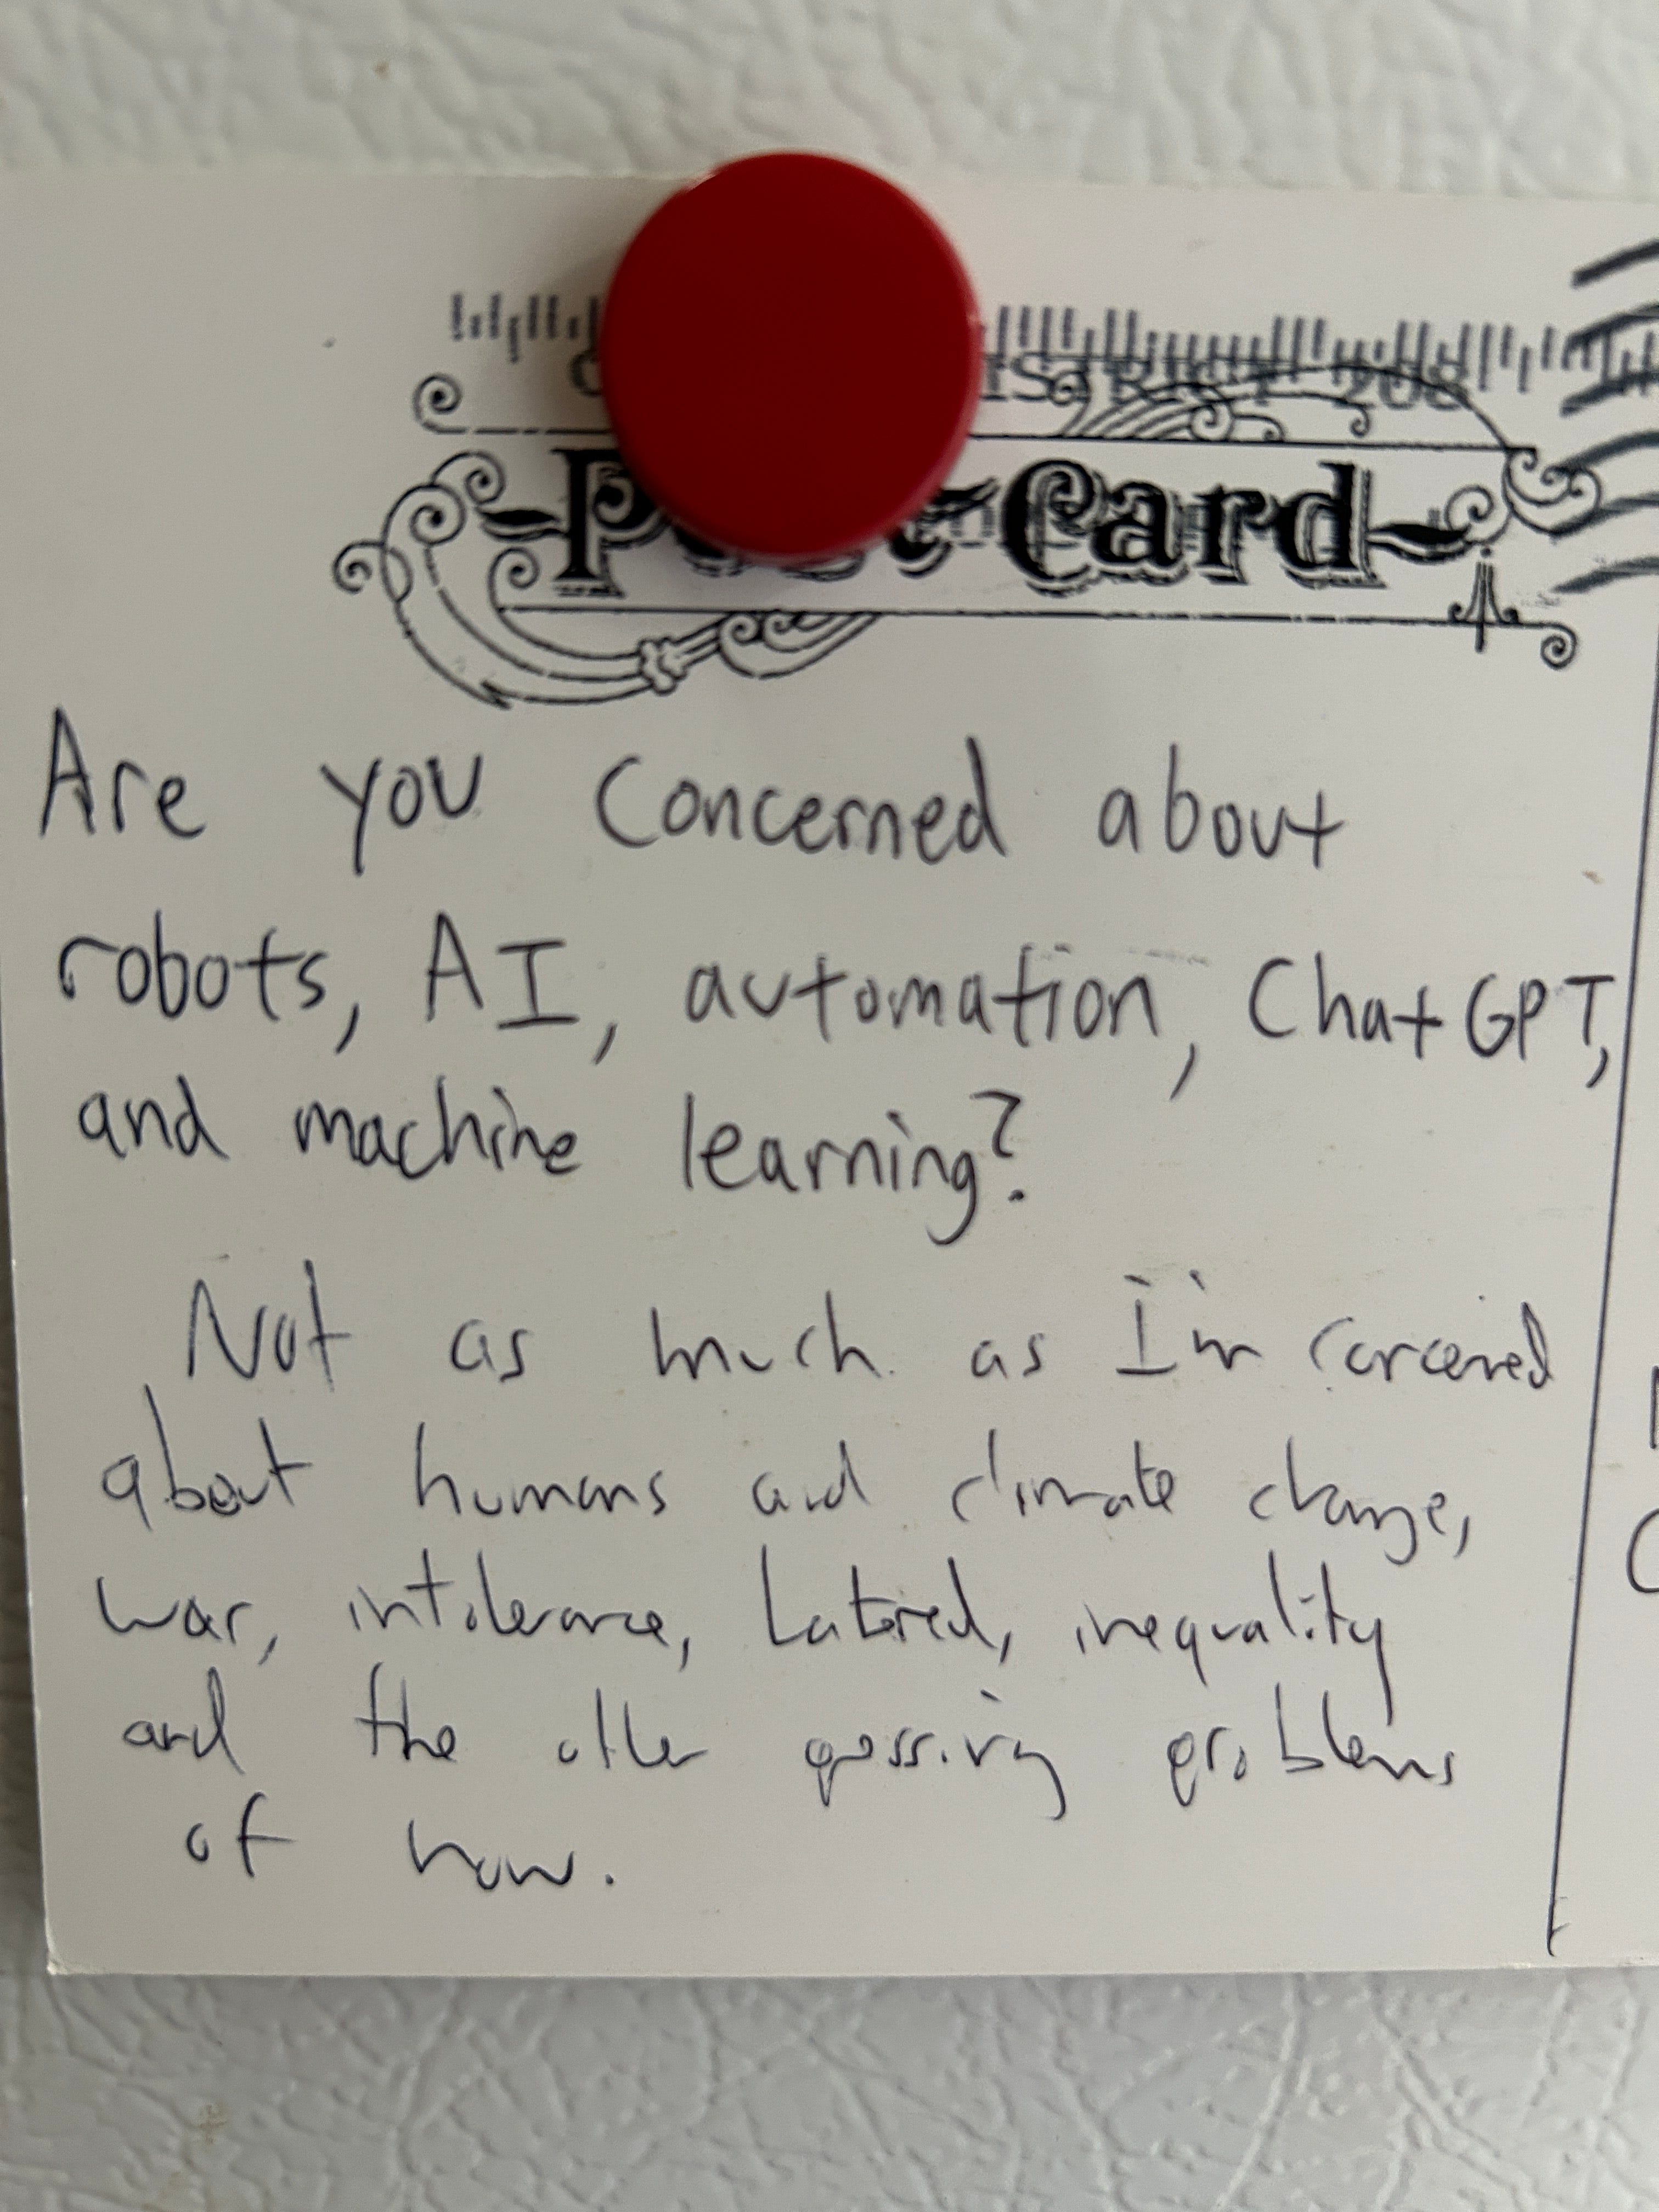 ISTRICT 208
Post-Card
Are you concerned about
robots, AI, automation, ChatGPT,
and machine learning?
Not as much as I'm concerned
about humans and climate change,
war, intolerance, hatered, inequality
and the other pressing problems
of now.